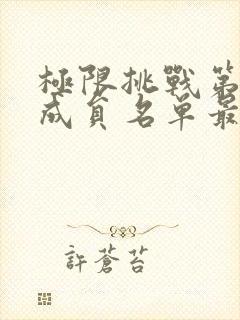 極限挑戰第
成員名單最
許蒼苔